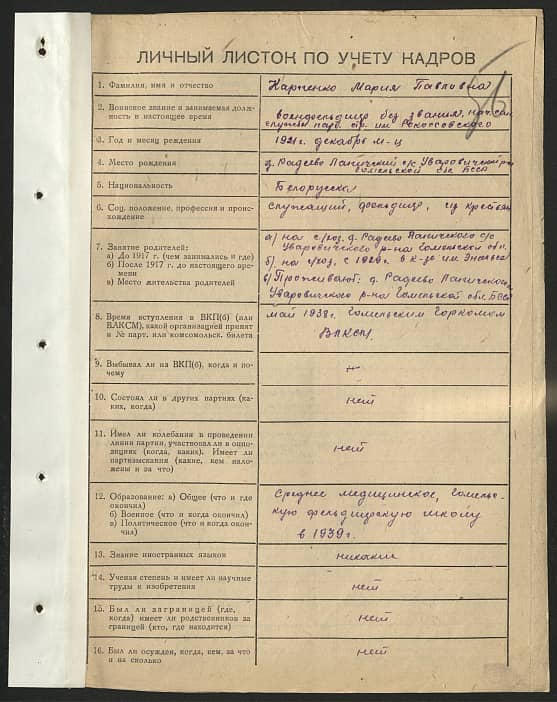 ЛИЧНЫЙ ЛИСТОК ПО УЧЕТУ КАДРОВ
1. Фамилия, имя и отчество
Карпенко Мария Павловна
2. Воинское звание и занимаемая долж-
ность в настоящее время
военфельдшер без звания, нач. сан.
службы парт. бр. им. Рокоссовского
3. Год и месяц рождения
1921 г. декабрь м-ц
4. Место рождения
д. Радеево Лапичский с/с Уваровичский р-н
Гомельской обл. БССР
5. Национальность
Белорусска
6. Соц. положение, профессия и проис-
хождение
служащий, фельдшер, из крестьян
7. Занятие родителей:
а) До 1917 г. (чем занимались и где)
б) После 1917 г. до настоящего вре-
мени
в) Место жительства родителей
а) на с/хоз. д. Радеево Лапичского с/с
Уваровичского р-на Гомельской обл.
б) на с/хоз. с 1929 г. в к-зе им. Энгельса
в) Проживают: д. Радеево Лапичского
Уваровичского р-на Гомельской обл. БССР
8. Время вступления в ВКП(б) (или
ВЛКСМ), какой организацией принят
и № парт. или комсомольск. билета
май 1938 г. Гомельским Горкомом
ВЛКСМ
9. Выбывал ли из ВКП(б), когда и по-
чему
10. Состоял ли в других партиях (ка-
ких, когда)
нет
11. Имел ли колебания в проведении
линии партии, участвовал ли в оппо-
зициях (когда, каких). Имеет ли
партвзыскания (какие, кем нало-
жены и за что)
нет
12. Образование: а) Общее (что и где
окончил)
б) Военное (что и когда окончил)
в) Политическое (что и когда окон-
чил)
Среднее медицинское, Гомель-
скую фельдшерскую школу
в 1939 г.
13. Знание иностранных языков
никакие
14. Ученая степень и имеет ли научные
труды и изобретения
нет
15. Был ли заграницей (где,
когда) имеет ли родственников за
границей (кто, где находится)
нет
16. Был ли осужден, когда, кем, за что
и на сколько
нет